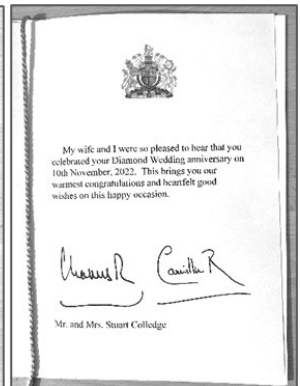 My wife and I were so pleased to hear that you
celebrated your Diamond Wedding anniversary on
10th November, 2022. This brings you our
warmest congratulations and heartfelt good
wishes on this happy occasion.
Charles R Camilla R
Mr. and Mrs. Stuart Colledge